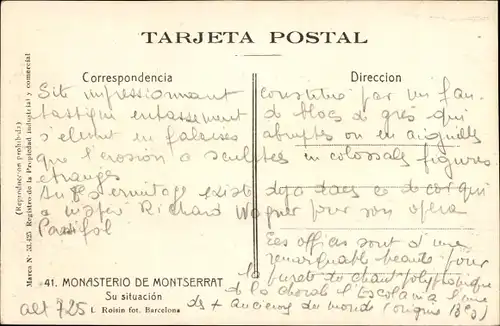 TARJETA POSTAL
Correspondencia
Direccion
Site impressionnant constitué par un fan-
tastique entassement de blocs de grès qui
s'élèvent en falaises abruptes ou en aiguilles
que l'érosion a sculptées en colossales figures
étranges
existe déjà dans ce décor qui
a inspiré Richard Wagner pour son opéra
Parsifal
Les offices sont d'une
remarquable beauté pour
la pureté du chant polyphonique
de la chorale l'Escolania l'une
des + anciennes du monde (origine
41. MONASTERIO DE MONTSERRAT
Su situación
L. Roisin fot. Barcelona
alt 725
(Reproduccion prohibida)
Marca N.º 35.425 Registro de la Propiedad industrial y comercial